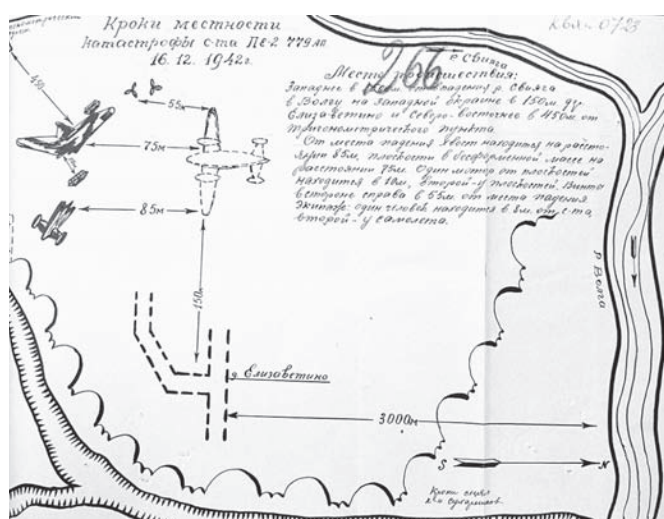 Кроки местности
катастрофы с-та Пе-2 779 ап
16.12.1942г.
КВяи 0723
266
р. Свияга
Место происшествия:
Западнее в впадения р. Свияга
в Волгу на западной окраине в 150м д.
Елизаветино и Северо-восточнее в 450м от
тригонометрического пункта.
От места падения хвост находится на расстоя-
нии 85м, плоскости в бесформенной массе на
расстоянии 75м. Один мотор от плоскостей
находится в 10м, второй-у плоскостей. Винты
в стороне справа в 55м. от места падения
Экипаж: один человек находится в 8м. от с-та,
второй-у самолета.
450
55м
75м
85м
150м
р. Волга
д. Елизаветино
3000м
S
N
Кроки снял
к-н